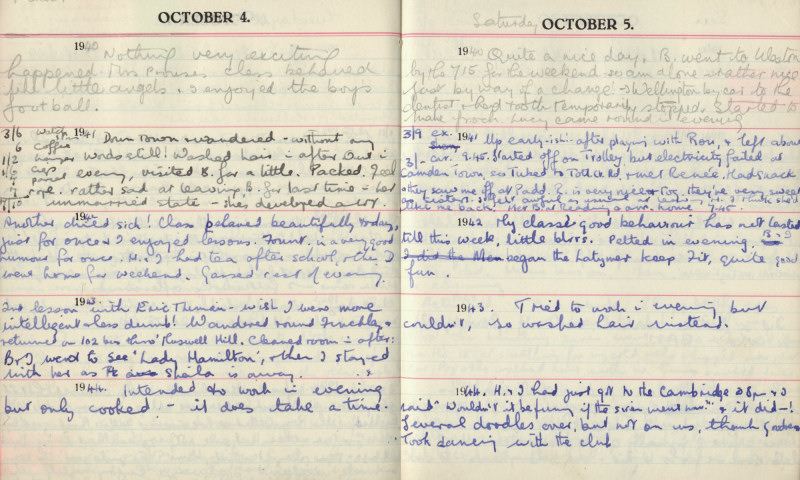 OCTOBER 4.
1940 Nothing very exciting
happened. Mrs class behaved
like little angels. & enjoyed the boys
football.
3/6 watch 1941 Down Town & wandered - without any
6 coffee
1/2 words still! Washed hair in after. Out in
evening, visited B. for a little. Packed. Feel
rather sad at leaving B. for last time in her
unmarried state - she's developed a lot.
1942
Another child sick! Class behaved beautifully today,
just for once & I enjoyed lessons. in a very good
humour for once. H. & I had tea after school, then I
went home for weekend. Gassed rest of evening.
1943.
1st lesson with Eric Thiman - wish I were more
intelligent & less dumb! Wandered round Finchley &
returned on 102 bus thro' Muswell Hill. Cleaned room in after:
B & I went to see 'Lady Hamilton', & then I stayed
with her as Sheila is away.
1944. Intended to work in evening
but only cooked - it does take a time.
Saturday OCTOBER 5.
1940 Quite a nice day. B. went to Weston
by the 7.15 for the weekend so am alone & rather nice
just by way of a change. Wellington by car to the
dentist & had tooth temporarily stopped. Started to
make frock. Lucy came round in evening
3/9 ex. 1941 Up early-ish after playing with Ron, & left about
3/- car. 9.45. Started off on Trolley, but electricity failed at
Camden Town, so Tubed to Tott. Ct. Rd, & met Renée. Had snack
& they saw me off at Padd. R. is very nice & Toy. They're very sweet
home 9.45
1942 My class' good behaviour has not lasted
till this week, little blrs. Petted in evening. B & I
I did the Men began the Latymer Keep Fit, quite good
fun.
1943. Tried to work in evening but
couldn't, so washed hair instead.
1944. H. & I had just got to the Cambridge & I
said "Wouldn't it be funny if the siren went now" & it did—!
Several doodles over, but not on us, thank goodness
Took dancing with the club